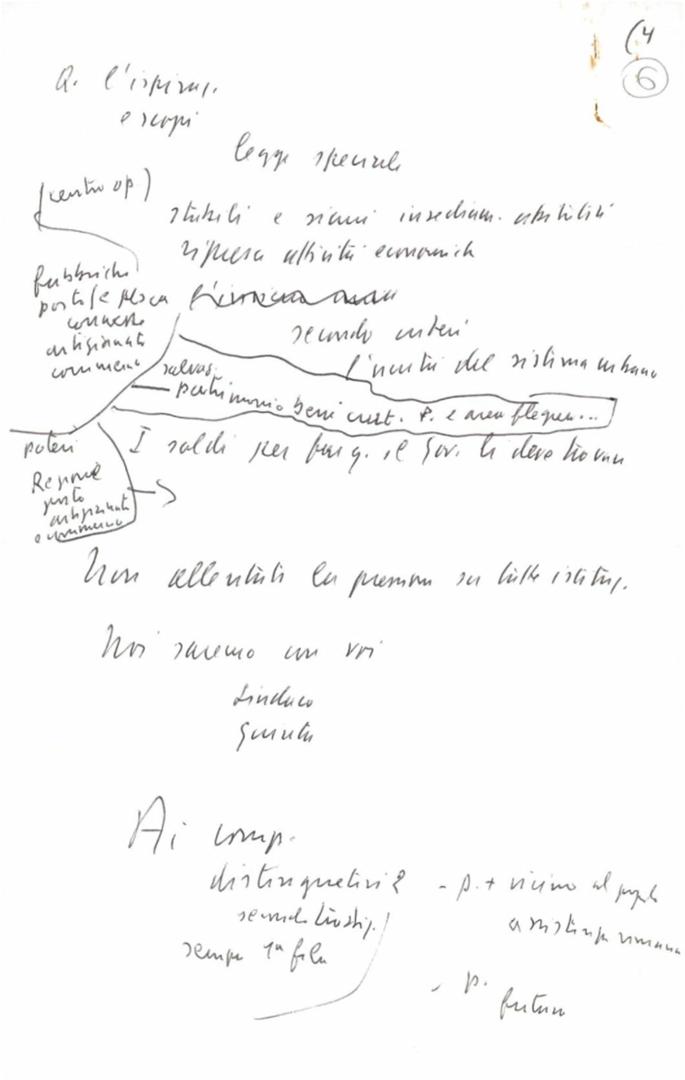 (4
6
Q. l'ispiraz.
e scopi
legge speciale
(centro op)
stabili e sicuri insediam. abitativi
ripresa attività economiche
fabbriche
porto / e pesca
commerc
artigianato
commercio
secondo criteri
l'unità del sistema urbano
salvag.
patrimonio beni cult. P. e area flegrea...
poteri
I soldi per far q. il Gov. li deve trovare
Regione
porto
artigianato
e commercio
Non allentate la pressione su tutte istituz.
Noi saremo con voi
Sindaco
Giunta
Ai comp.
distinguetevi
seconda tradiz.
sempre 1ª fila
- p. + vicino al popolo
assistenza umana
- p.
futuro